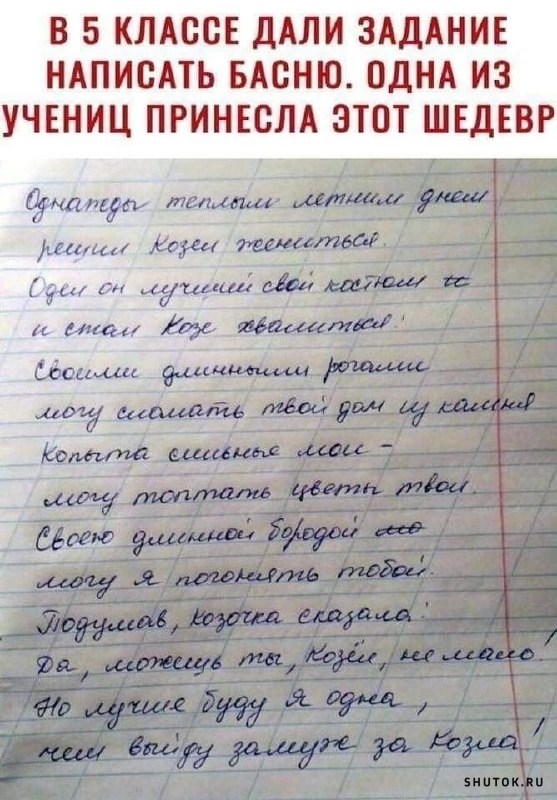 В 5 КЛАССЕ ДАЛИ ЗАДАНИЕ
НАПИСАТЬ БАСНЮ. ОДНА ИЗ
УЧЕНИЦ ПРИНЕСЛА ЭТОТ ШЕДЕВР
Однажды теплым летним днем
решил Козел жениться.
Одел он лучший свой костюм и
и стал Козе хвалиться:
Своими длинными рогами
могу сломать твой дом из камня
Копыта сильные мои -
могу топтать цветы твои.
Своею длинной бородой мо
могу я погонять тобой.
Подумав, Козочка сказала:
Да, можешь ты, Козёл, не мало!
Но лучше буду я одна,
чем выйду замуж за Козла!
SHUTOK.RU